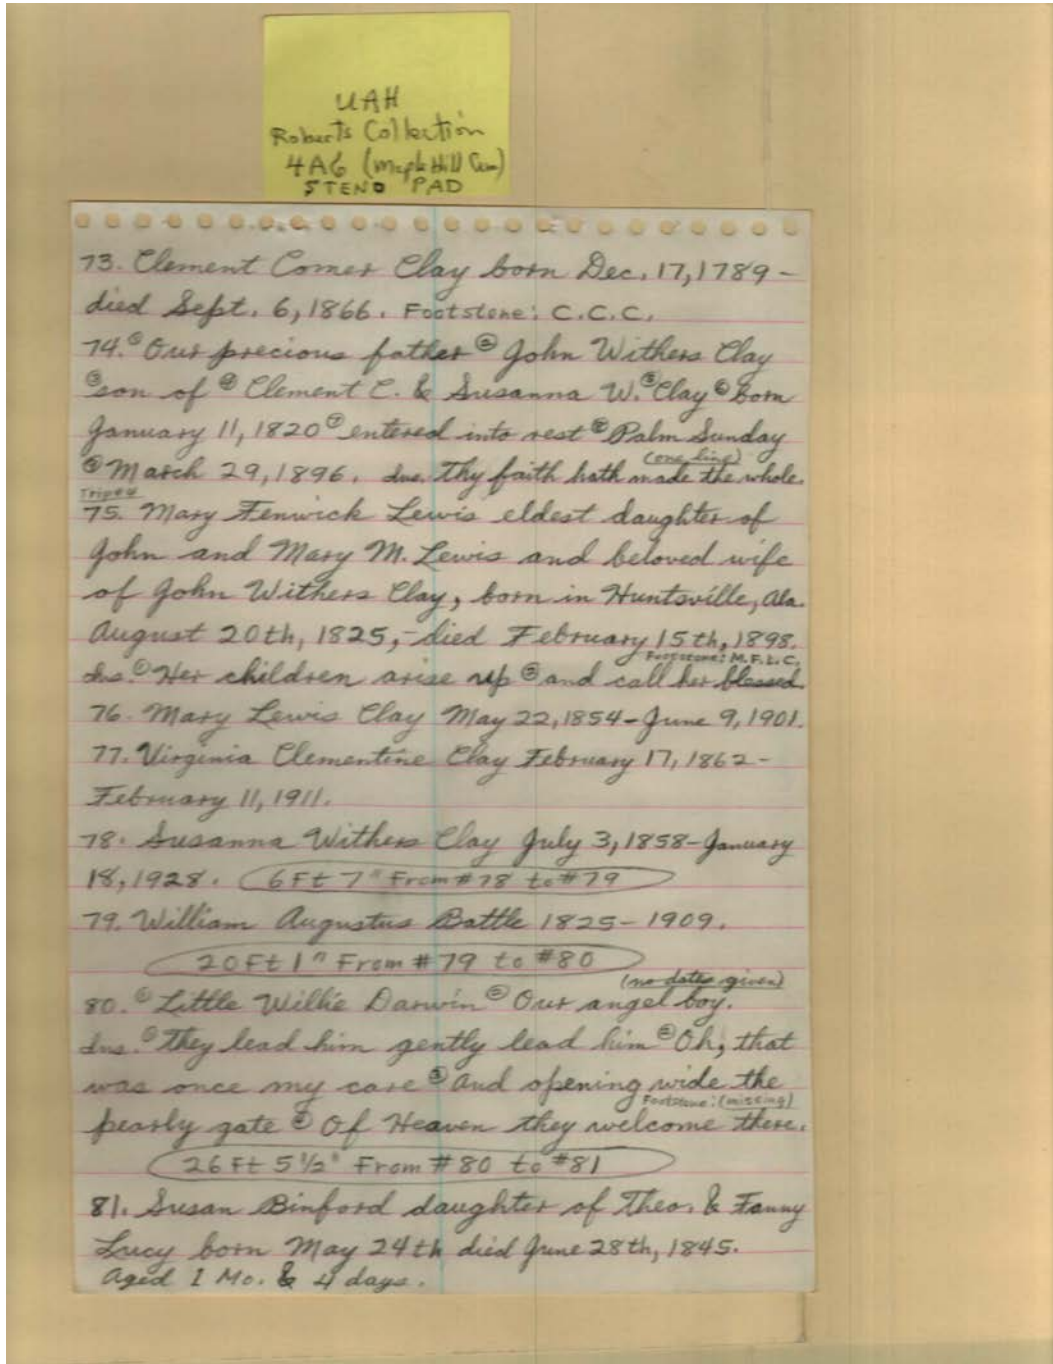 UAH
Roberts Collection
4A6 (Maple Hill Cem)
STENO PAD
73. Clement Comer Clay born Dec. 17, 1789 -
died Sept. 6, 1866. Footstone: C.C.C.
74. ① Our precious father ② John Withers Clay
③ son of ④ Clement C. & Susanna W. ⑤ Clay ⑥ born
January 11, 1820 ⑦ entered into rest ⑧ Palm Sunday
(one line)
⑨ March 29, 1896. Ins. Thy faith hath made the whole.
75. Mary Fenwick Lewis eldest daughter of
John and Mary M. Lewis and beloved wife
of John Withers Clay, born in Huntsville, Ala.
August 20th, 1825, - died February 15th, 1898.
Footstone: M.F.L.C.
Ins. ① Her children arise up ② and call her blessed.
76. Mary Lewis Clay May 22, 1854 - June 9, 1901.
77. Virginia Clementine Clay February 17, 1862 -
February 11, 1911.
78. Susanna Withers Clay July 3, 1858 - January
18, 1928. 6 Ft 7" From #78 to #79
79. William Augustus Battle 1825 - 1909.
20 Ft 1" From #79 to #80
(no dates given)
80. ① Little Willie Darwin ② Our angel boy.
Ins. ① They lead him gently lead him ② Oh, that
was once my care ③ And opening wide the
Footstone: (missing)
pearly gate ④ Of Heaven they welcome there.
26 Ft 5 1/2" From #80 to #81
81. Susan Binford daughter of Theo. & Fanny
Lucy born May 24th died June 28th, 1845.
Aged 1 Mo. & 4 days.